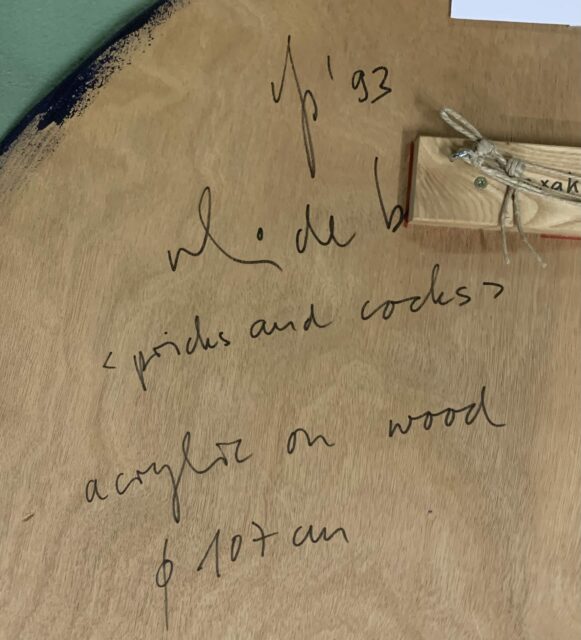 '93
de b
<pricks and cocks>
acrylic on wood
φ 107 cm
xak